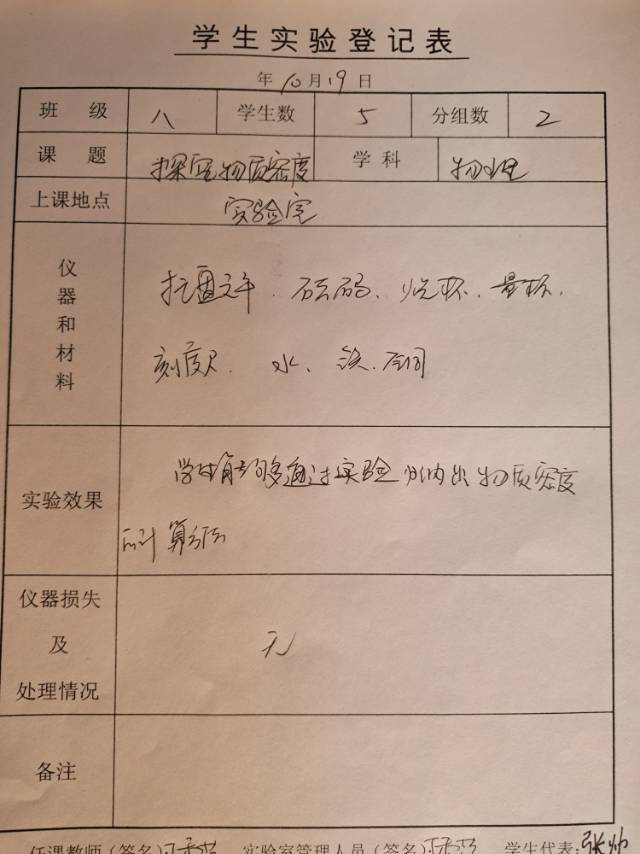 学生实验登记表
年10月19日
班级 八 学生数 5 分组数 2
课题 探究物质密度 学科 物理
上课地点 实验室
仪器和材料 托盘天平、砝码、烧杯、量杯、
刻度尺、水、铁、铝
实验效果 学生能够通过实验归纳出物质密度
的计算方法
仪器损失及处理情况 无
备注
任课教师(签名) 实验室管理人员(签名) 学生代表:张帅